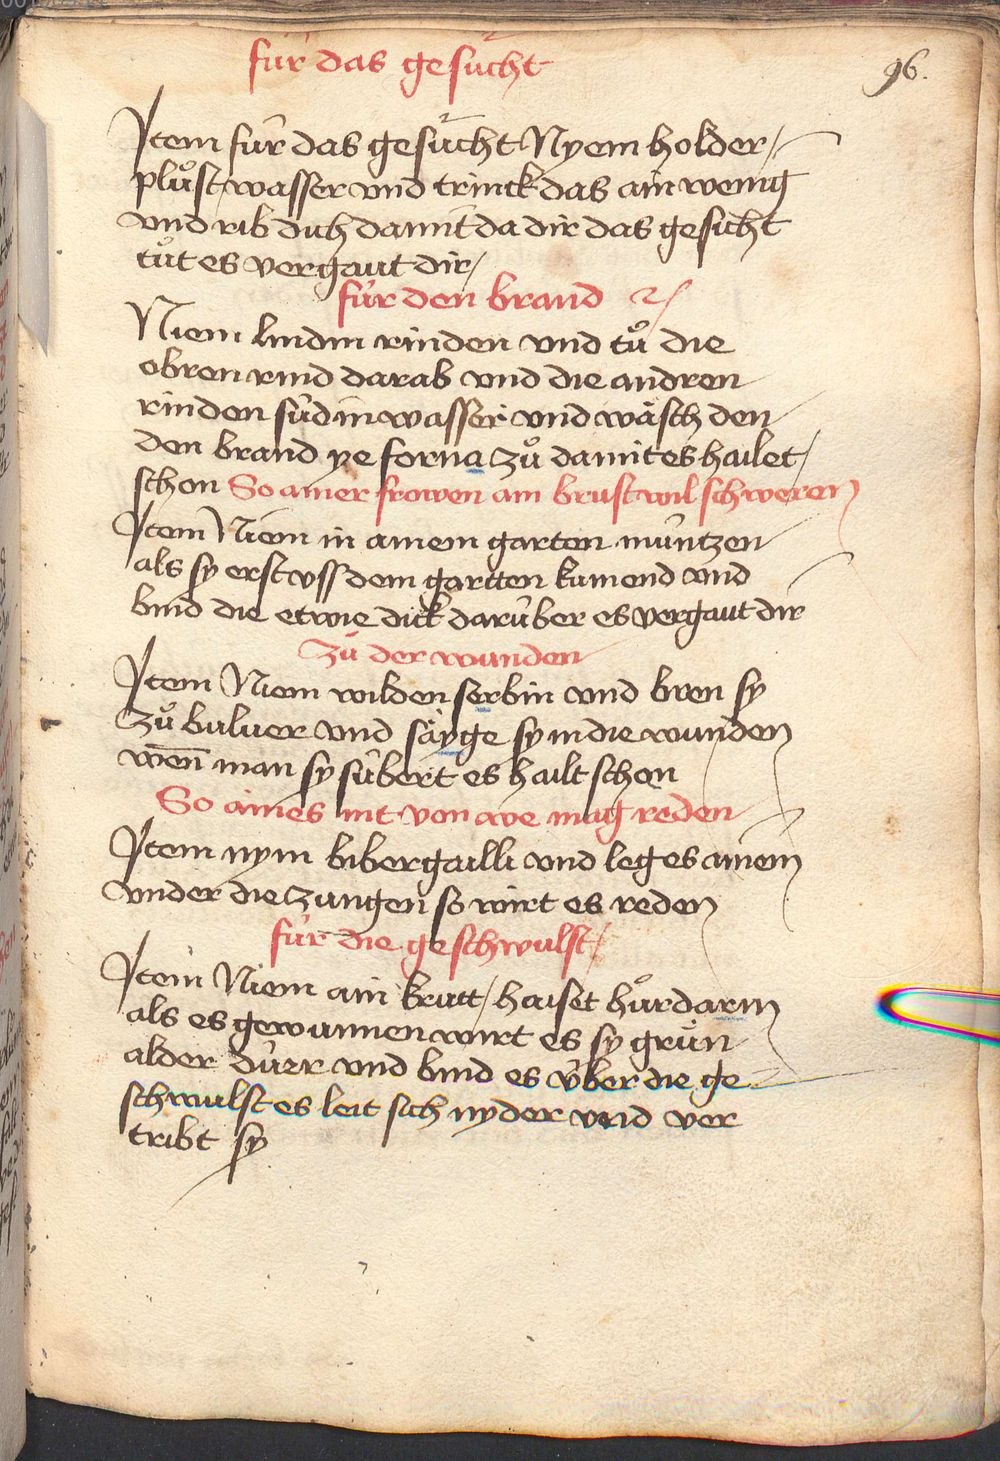 für das gesücht
96.
Jtem für das gesücht Nyem holder/
plůst wasser vnd trinck das ain wenig
vnd rib dich damit da dir das gesicht
tůt es vergaut dir/
für den brand
Niem lindin rinden vnd tů die
obren rind darab vnd die andren
rinden süd in wasser vnd wäsch den
den brand ye forna zů damit es hailet/
schon So ainer frowen ain brust wil schweren
Jtem Niem in ainem garten müntzen
als sy erst vss dem gartten kumend vnd
bind die etwie dick darüber es vergaut dir
Zů der wunden
Jtem Niem wilden serbin vnd bren sy
Zů buluer vnd säyge sy in die wunden
wen̄ man sy sübert es hailt schon
So aines nit von we mag reden
Jtem nym bibergailli vnd leg es ainem
vnder die zungen so wirt es reden
für die geschwulst/
Jtem Niem ain krutt/ haiset hůrdarm
als es gewunnen wirt es sy grün
alder dürr vnd bind es v̈ber die ge
schwulst es leit sich nyder vnd ver
tribt sy